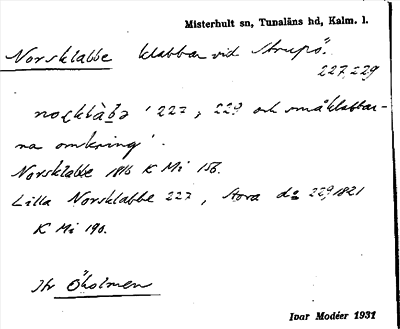 Misterhult sn, Tunaläns hd, Kalm. l.
Norsklabbe klabbar vid Strupö.
227, 229
'227, 229 och småklabbar-
na omkring'.
Norsklabbe 1816 K Mi 156.
Lilla Norsklabbe 227, Stora d:o 229, 1821
K Mi 190.
Öholmen
Ivar Modéer 1931